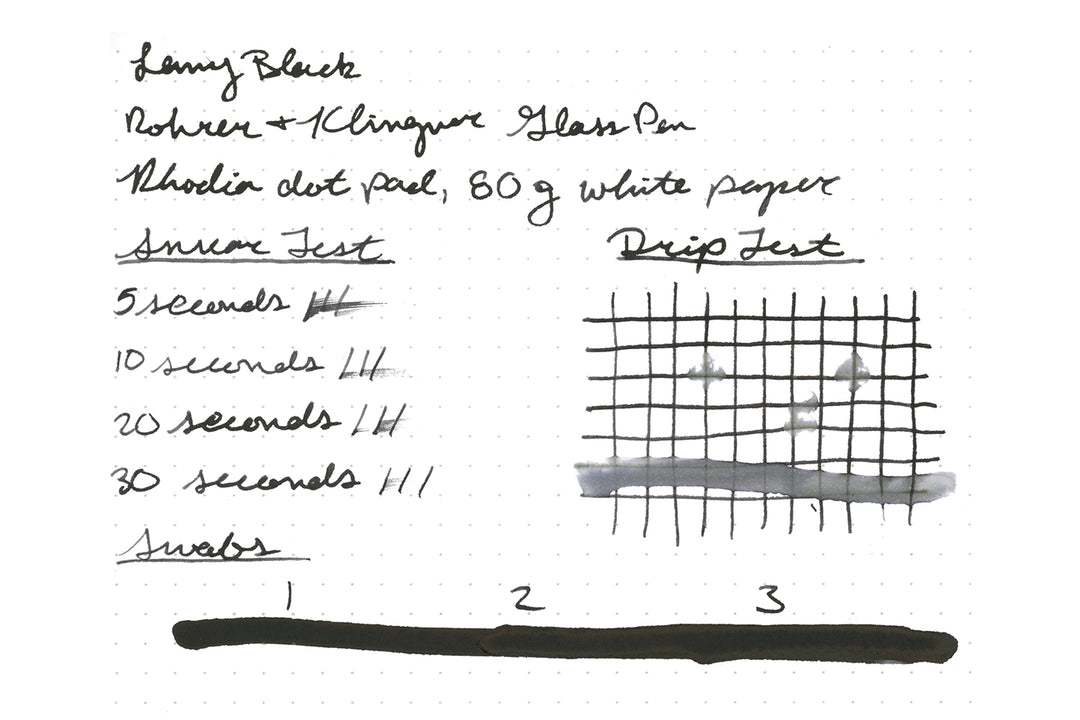 Lamy Black
Rohrer + Klingner Glass Pen
Rhodia dot pad, 80 g white paper
Smear Test
Drip Test
5 seconds
10 seconds
20 seconds
30 seconds
Swabs
1 2 3